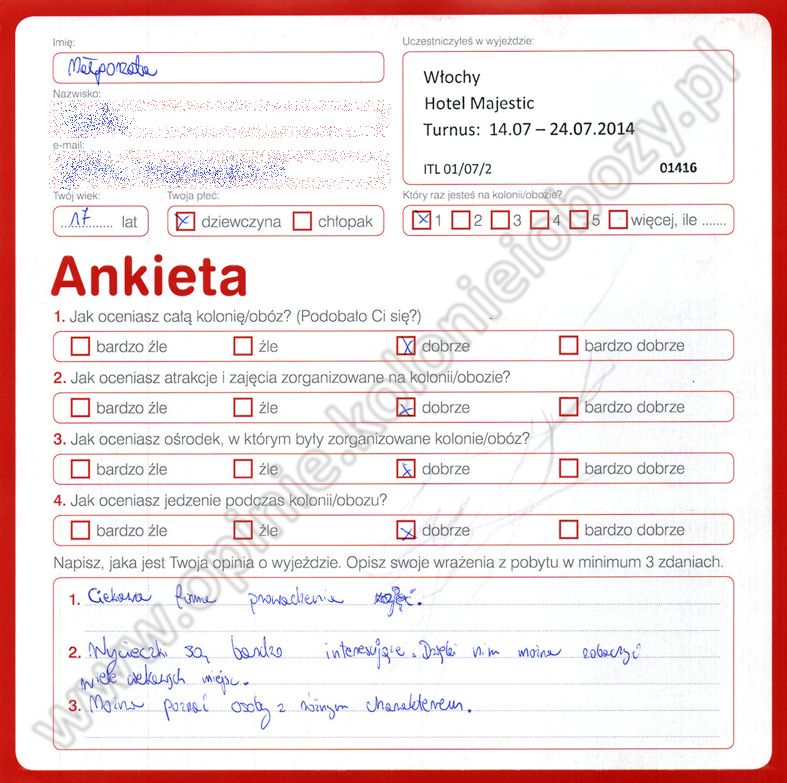 Imię:
Uczestniczyłeś w wyjeździe:
Małgorzata
Włochy
Hotel Majestic
Turnus: 14.07 – 24.07.2014
ITL 01/07/2
01416
Nazwisko:
e-mail:
Twój wiek:
Twoja płeć:
Który raz jesteś na kolonii/obozie?
17 lat
dziewczyna
chłopak
1 2 3 4 5 więcej, ile .......
Ankieta
1. Jak oceniasz całą kolonię/obóz? (Podobało Ci się?)
bardzo źle
źle
dobrze
bardzo dobrze
2. Jak oceniasz atrakcje i zajęcia zorganizowane na kolonii/obozie?
bardzo źle
źle
dobrze
bardzo dobrze
3. Jak oceniasz ośrodek, w którym były zorganizowane kolonie/obóz?
bardzo źle
źle
dobrze
bardzo dobrze
4. Jak oceniasz jedzenie podczas kolonii/obozu?
bardzo źle
źle
dobrze
bardzo dobrze
Napisz, jaka jest Twoja opinia o wyjeździe. Opisz swoje wrażenia z pobytu w minimum 3 zdaniach.
1. Ciekawa forma prowadzenia zajęć.
2. Wycieczki są bardzo interesujące. Dzięki nim można zobaczyć
wiele ciekawych miejsc.
3. Można poznać osoby z różnym charakterem.
www.opinie.kolonieiobozy.pl